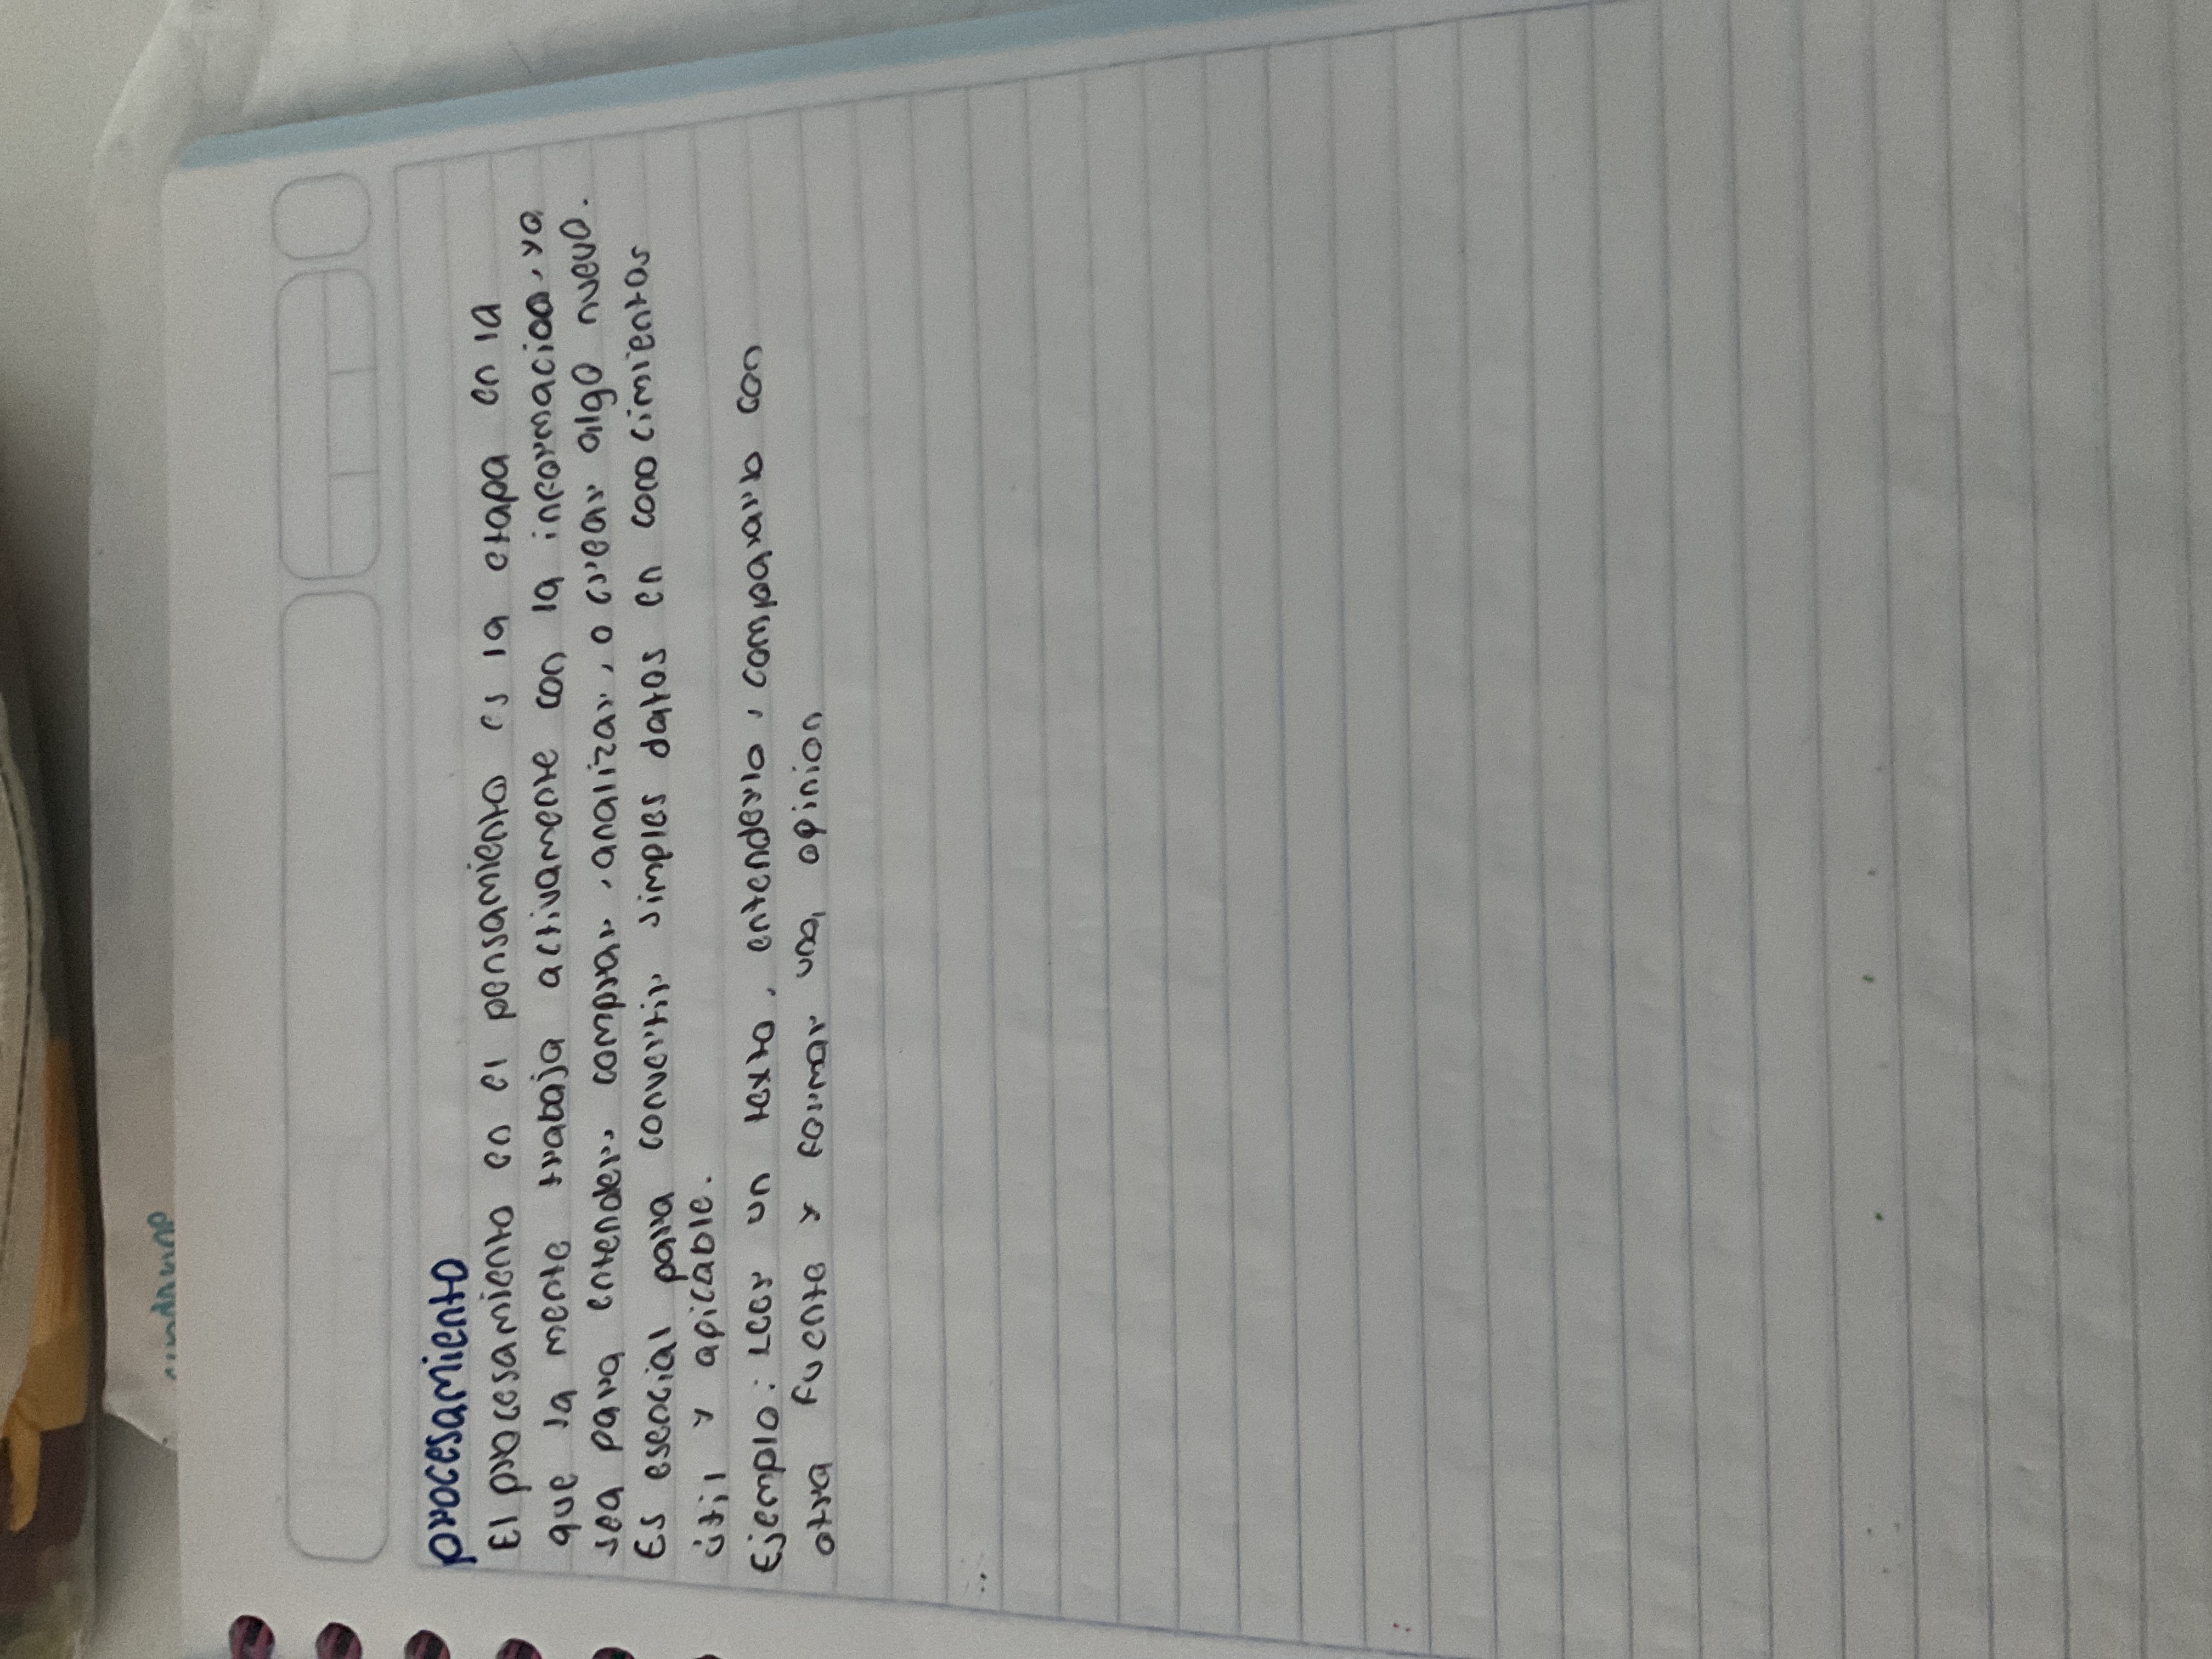 procesamiento
El procesamiento en el pensamiento es la etapa en la
que la mente trabaja activamente con la informacion, ya
sea para entender, comprar, analizar, o crear algo nuevo.
Es esencial para convertir simples datos en conocimientos
útil y apicable.
Ejemplo: Leer un texto, entenderlo, compararlo con
otra fuente y formar una opinion